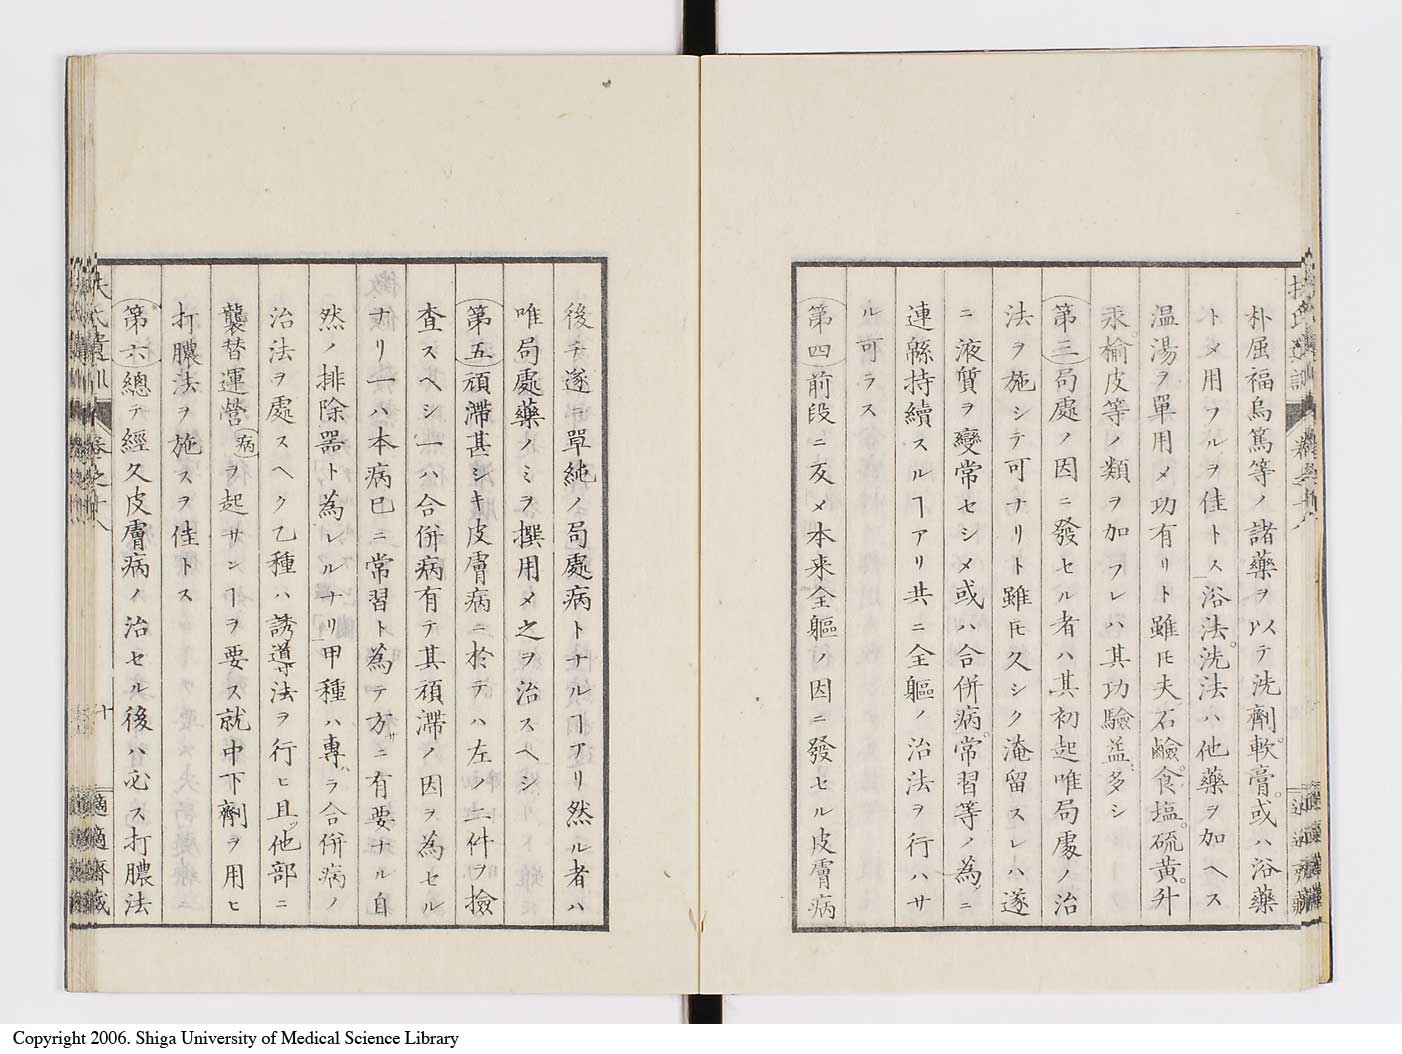 朴屈福烏篤等ノ諸藥ヲ以テ洗劑。軟膏。或ハ浴藥
トメ用フルヲ佳トス浴法。洗法ハ他藥ヲ加ヘス
温湯ヲ單用メ功有リト雖𪜈夫。石鹼。食塩。硫黄。升
汞。榆皮等ノ類ヲ加フレハ其功驗益〻多シ
第三局處ノ因ニ發セル者ハ其初起唯局處ノ治
法ヲ施シテ可ナリト雖𪜈久シク淹留スレハ遂
ニ液質ヲ變常セシメ或ハ合併病。常習等ノ為ニ
連緜持續スルヿアリ共ニ全軀ノ治法ヲ行ハサ
ル可ラス
第四前段ニ反メ本来全軀ノ因ニ發セル皮膚病
後チ遂ニ單純ノ局處病トナルヿアリ然ル者ハ
唯局處藥ノミヲ撰用メ之ヲ治スヘシ
第五頑滯甚シキ皮膚病ニ於テハ左ノ二件ヲ撿
査スヘシ一ハ合併病有テ其頑滯ノ因ヲ為セル
ナリ一ハ本病已ニ常習ト為テ方サニ有要ナル自
然ノ排除器ト為レルナリ甲種ハ專ハラ合併病ノ
治法ヲ處スヘク乙種ハ誘導法ヲ行ヒ且ツ他部ニ
襲替運營病ヲ起サンヿヲ要ス就中下劑ヲ用ヒ
打膿法ヲ施スヲ佳トス
第六總テ經久皮膚病ノ治セル後ハ必ス打膿法
扶氏遺訓 卷之十八 十 適適齋藏
Copyright 2006. Shiga University of Medical Science Library